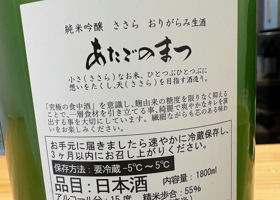 純米吟醸 ささら おりがらみ生酒
あたごのまつ
小さく(ささら)なお米、ひとつぶひとつぶに
想いをたくし、天(ささら)を目指す酒造り。
「究極の食中酒」を意識し、麹由来の糖度を限りなく抑える
ことで、一層食材を引き立てる事、綺麗で爽やかなキレを演
出する事を大切にしています。繊細かつ思いやりのある味わい
をお楽しみください。
お手元に届きましたら速やかに冷蔵保存し、
3ヶ月以内にお召し上がりください。
保存方法:要冷蔵 -5℃~5℃
品目:日本酒 内容量:1800ml
アルコール分:15度 精米歩合:55%